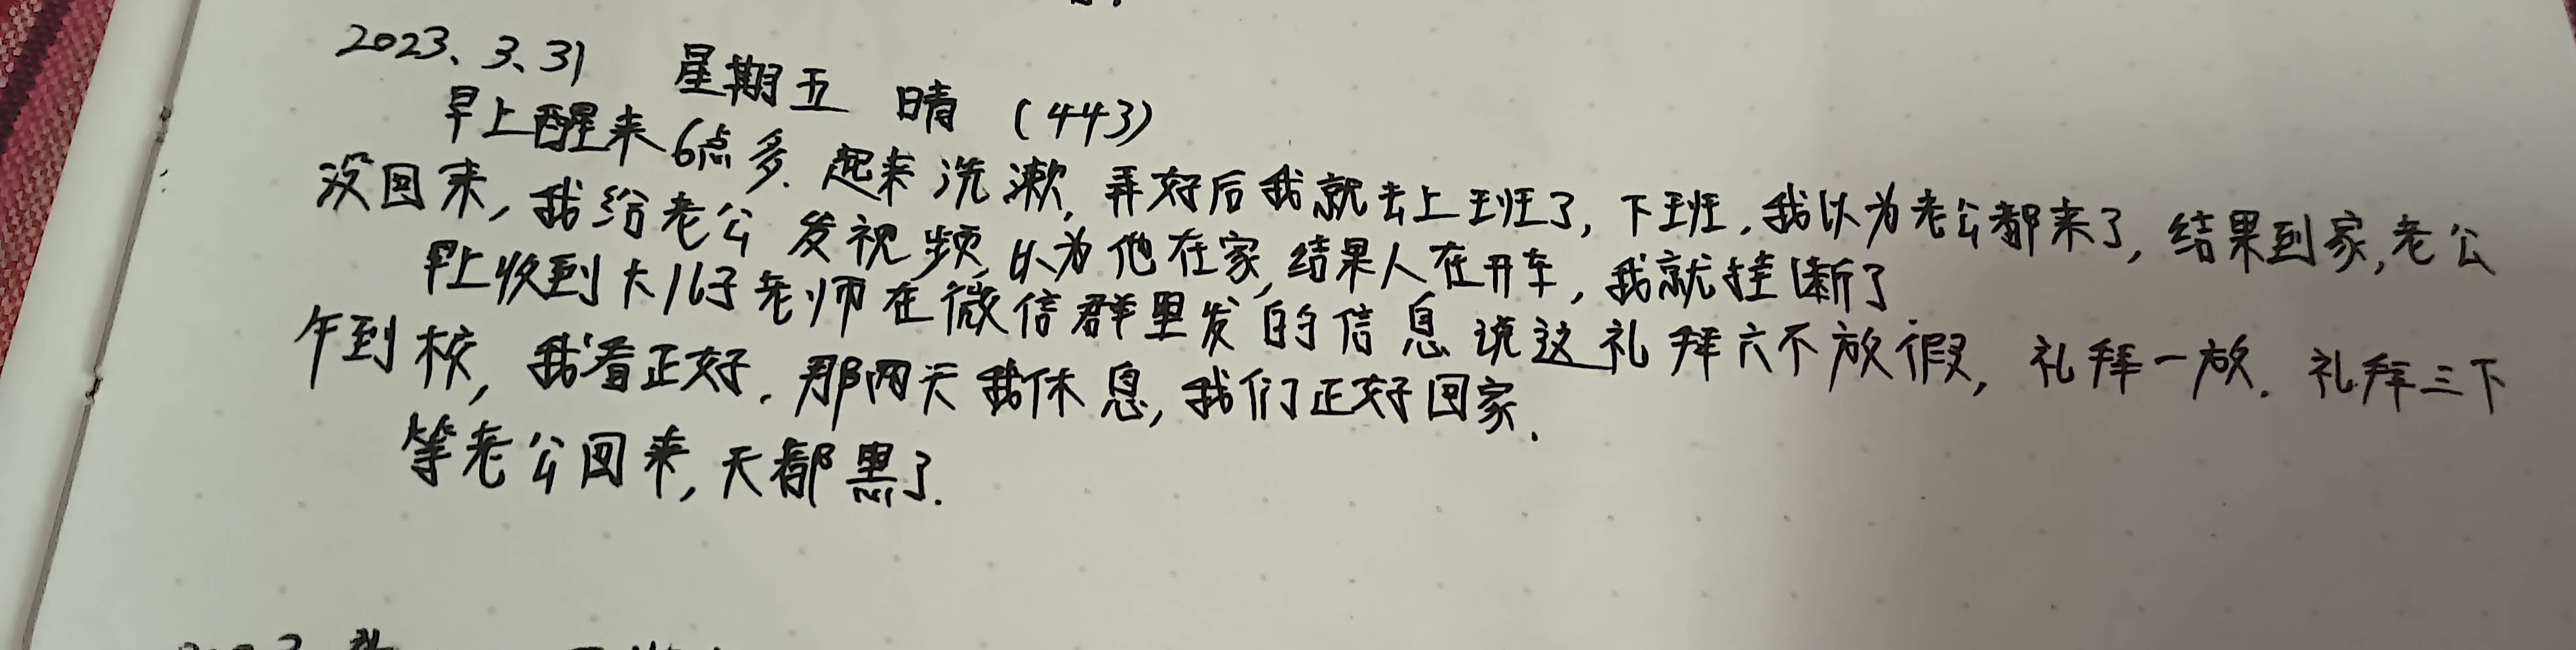 2023、3、31 星期五 晴 (443)
早上醒来6点多.起来洗漱,弄好后我就去上班了,下班,我以为老公都来了,结果到家,老公
没回来,我给老公发视频,以为他在家,结果人在开车,我就挂断了
早上收到大儿子老师在微信群里发的信息说这礼拜六不放假,礼拜一放.礼拜三下
午到校,我看正好.那两天我休息,我们正好回家.
等老公回来,天都黑了.